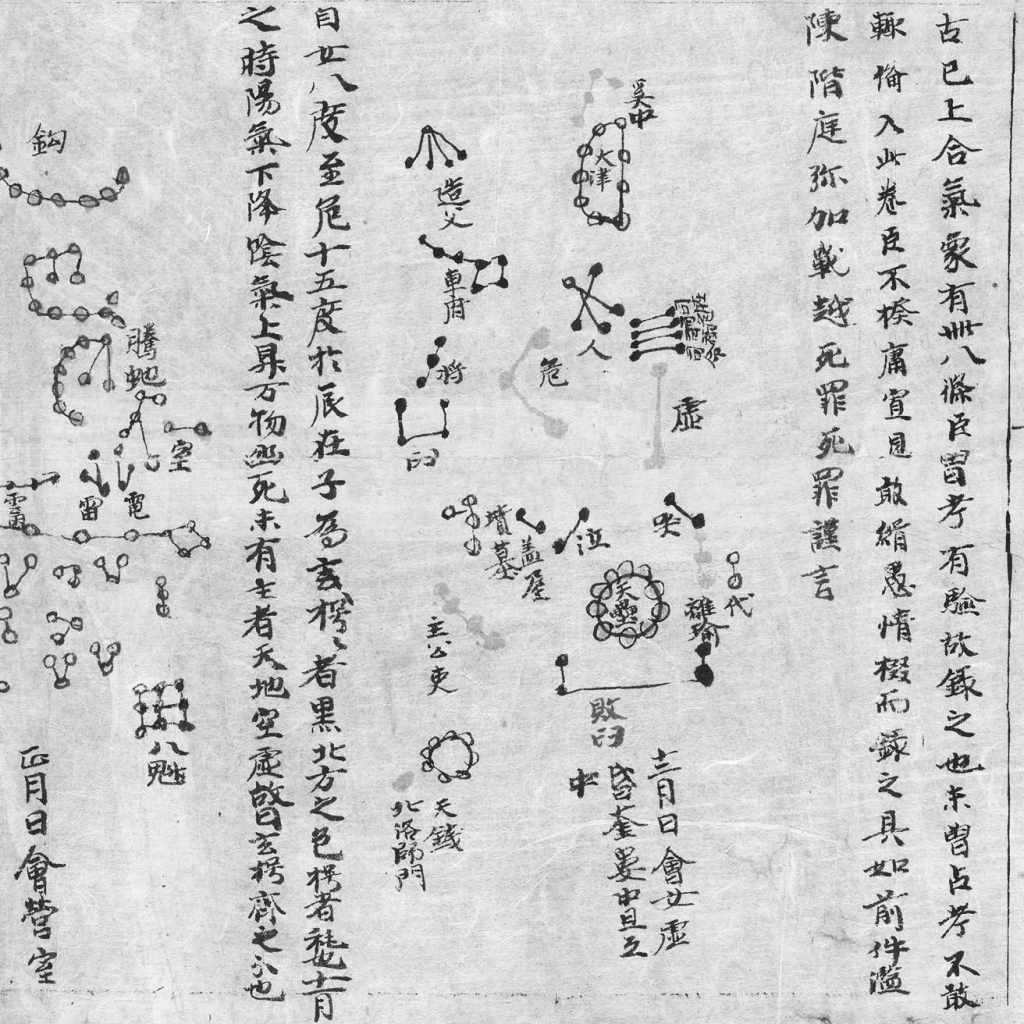 古已上合氣象有卌八條臣曾考有驗故錄之也未曾占考不敢
輒備入此卷臣不揆庸宣見敢緝愚情掇而錄之具如前件濫
陳階庭弥加戰越死罪死罪謹言
奚仲
天津
人
虛
危
哭
泣
代
離瑜
天壘
敗臼
十二月日會女虛
昏奎婁中旦互
中
造父
車府
杵
臼
墳墓
蓋屋
主公吏
天錢
北落師門
自女八度至危十五度於辰在子為玄枵〻者黑北方之色枵者秏也十一月
之時陽氣下降陰氣上昇万物幽死未有生者天地空虛曰玄枵齊之分也
鈎
騰蛇
室
電
雷
八魁
正月日會營室